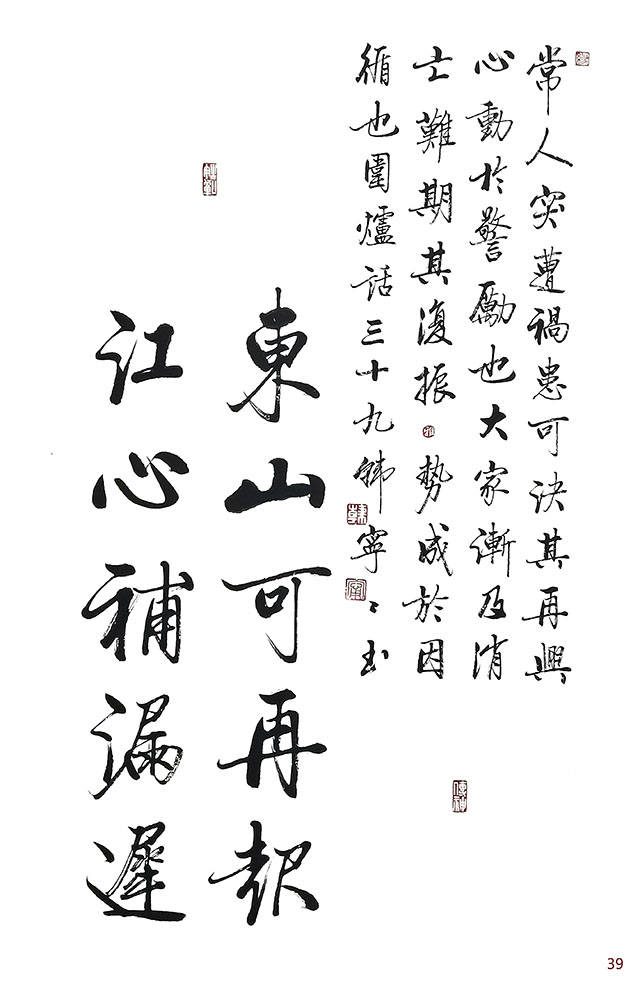 常人突遭禍患可決其再興
心動於警勵也大家漸及消
亡難期其復振勢成於因
循也圍爐話三十九韓寧〻
東山可再起
江心補漏遲
39